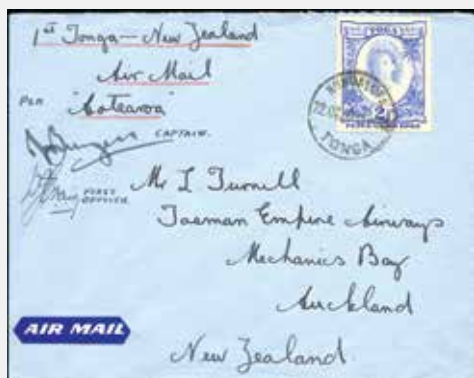 1st Tonga — New Zealand
Air Mail
Per "Aotearoa"
CAPTAIN.
FIRST OFFICER
TOGA
2D
TONGA
Mr I Turnill
Tasman Empire Airways
Mechanics Bay
Auckland
New Zealand.
AIR MAIL